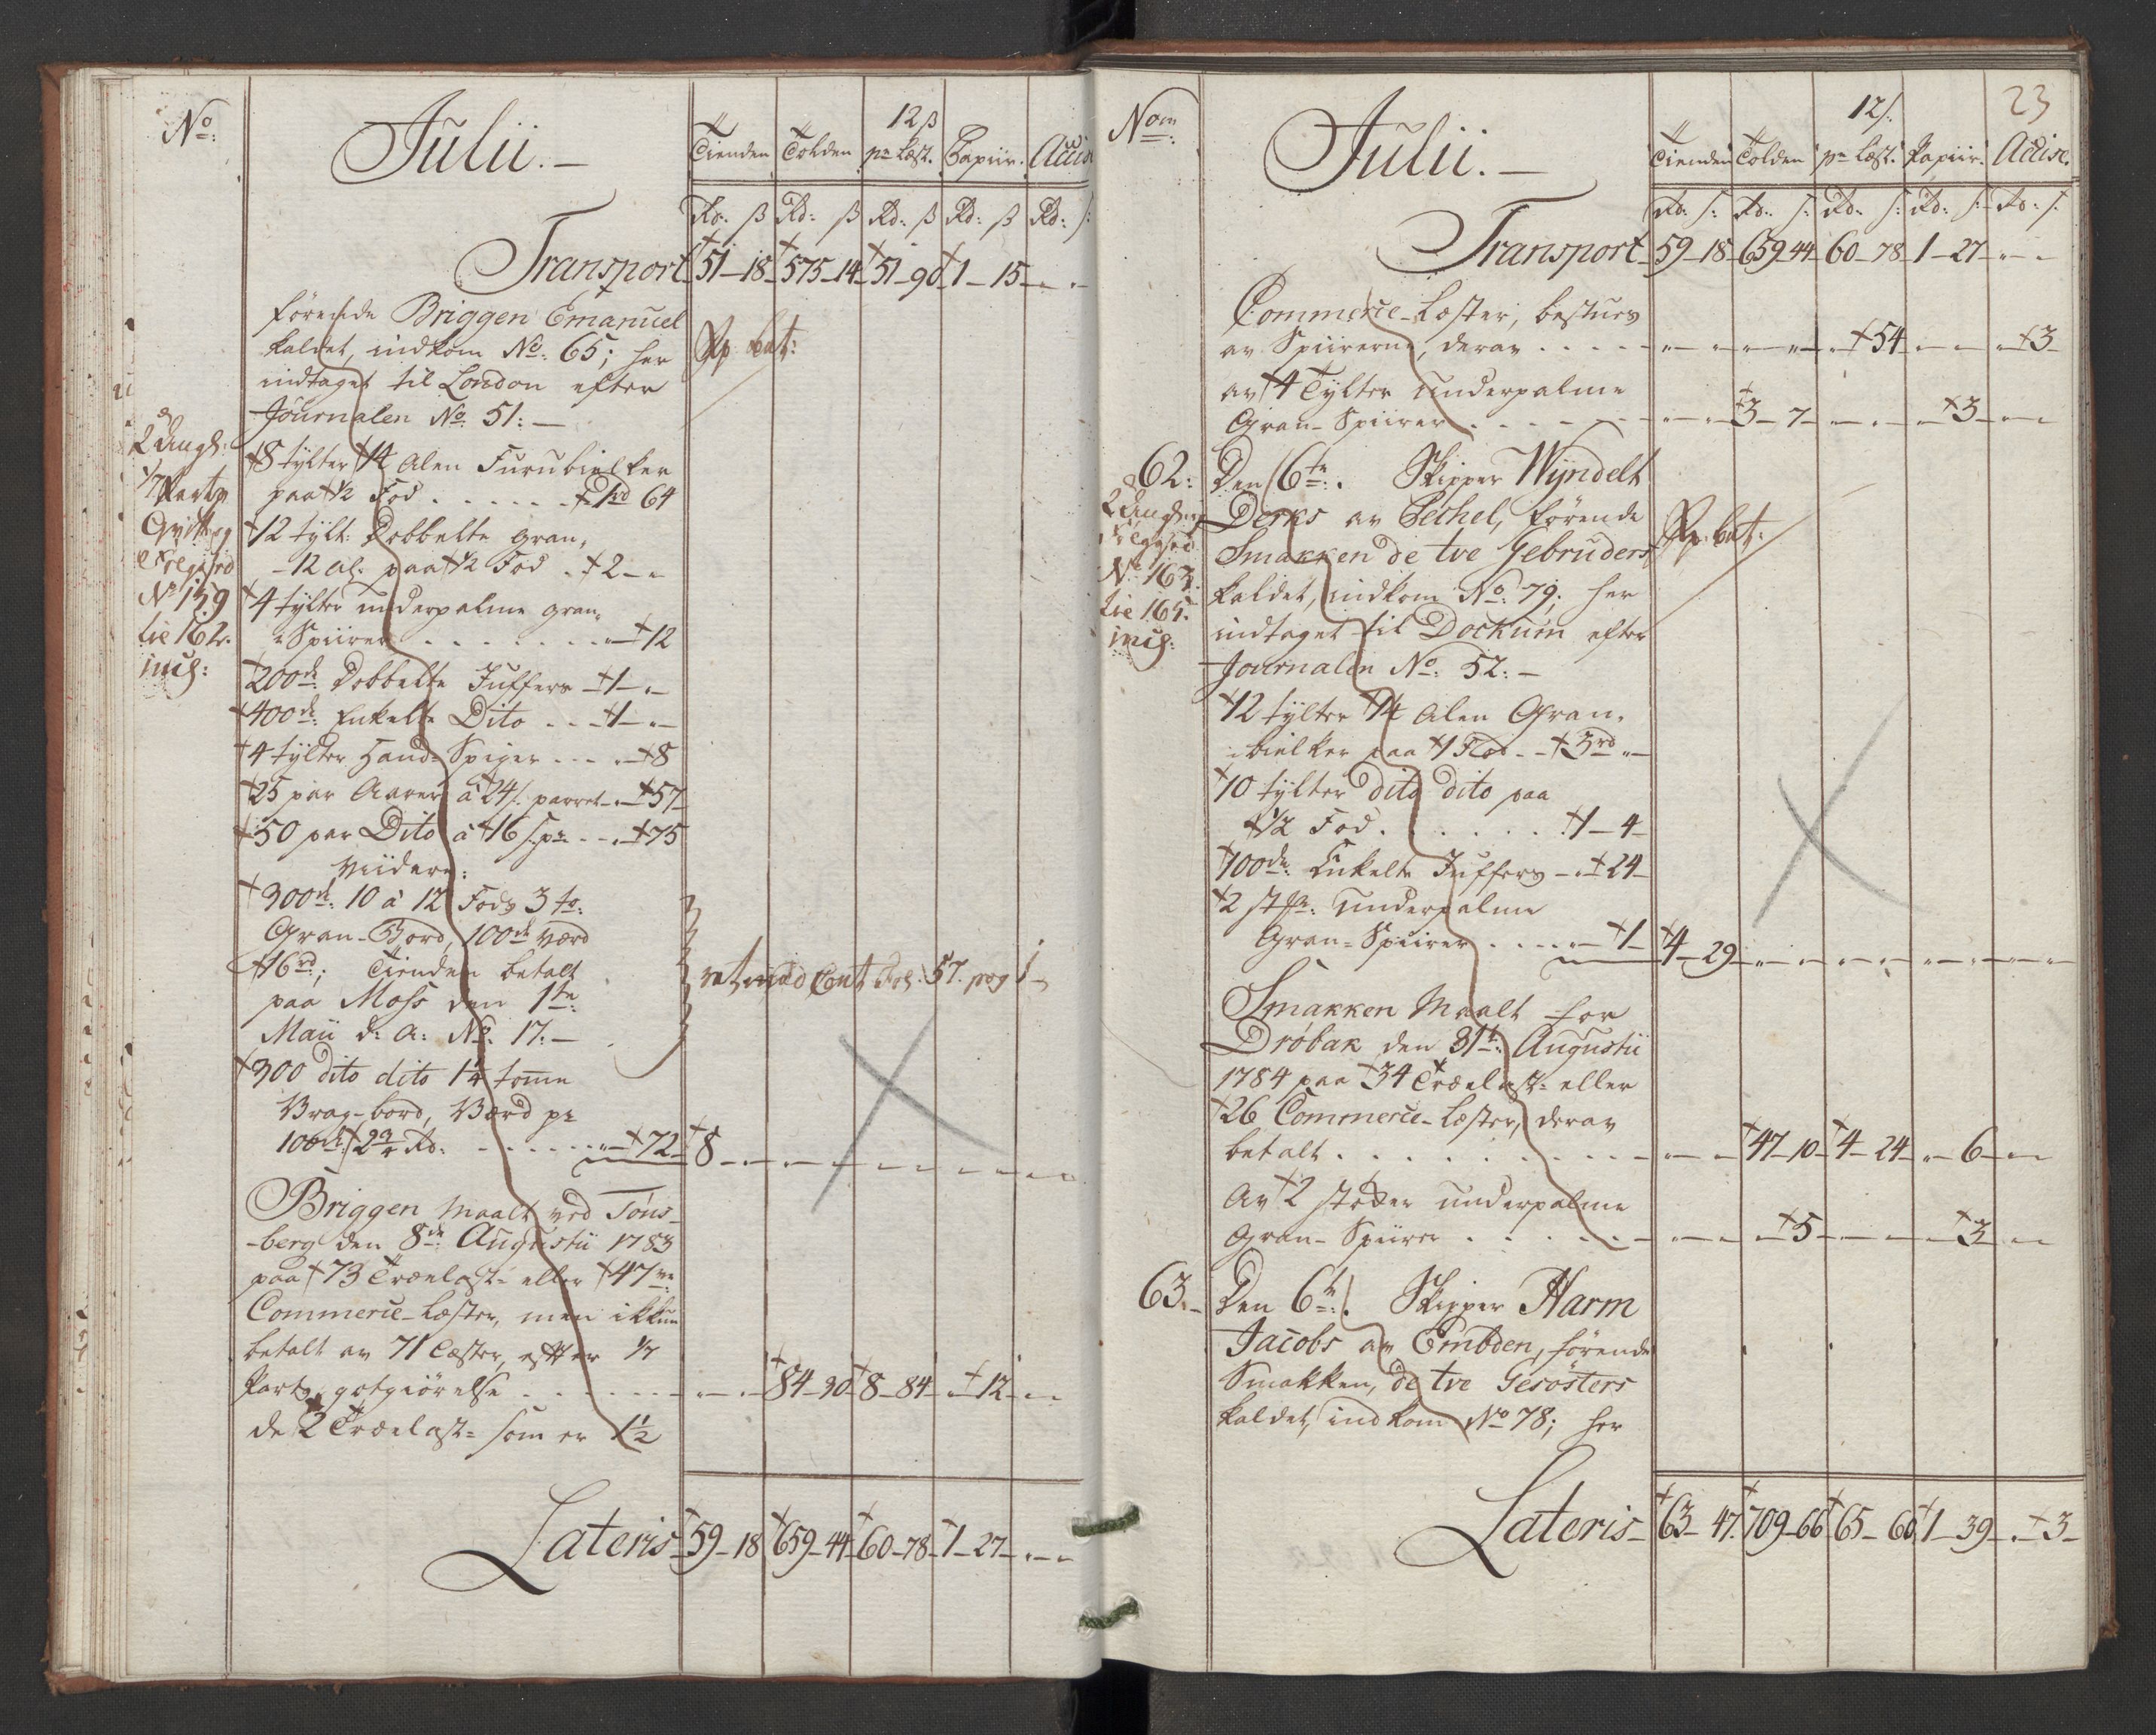 No:
Julii. —
Tienden Tolden 12 ß pr Læst. Papiir. Accise
Rd: ß Rd: ß Rd: ß Rd: ß Rd: ß
Transport 51-18 575-14 51-90 1-15 - -
førende Briggen Emanuel
kaldet, indkom No: 65; her
indtaget til London efter
Journalen No. 51: —
8 tylter 14 Alen Furubielker
paa ½ Fod . . . . . 1rd 64
12 tylt: Dobbelte Gran,
-12 al: paa ½ Fod . 2 - -
4 tylter underpalme gran,
Spiirer . . . . . . . - 12
200de Dobbelte Juffers - 1 - -
400de Enkelte Dito . . - 1 - -
4 tylter Hand-Spiger . . . - 8
25 par Aarer à 24 ß. parret - - 57
50 par Dito à 16 ß. pr. . - - 75
viidere:
300de 10 à 12 Fods 3 to:
Gran-Bord, 100de værd
16rd; Tienden betalt
paa Moss den 1te
Maii d: A: No. 17. —
300 dito dito 1¼ tomme
Vrag-bord, Værd pr
100de 2¾ Rd. . . . . . - 72 8 - - - - - - - - -
Briggen Maalt ved Tøns-
-berg den 8de Augustii 1783
paa 73 Trælast- eller 47
Commerce-Læster, men ikkun
betalt av 71 Læster, efter 1/7
Parts godtgiørelse . . . . . - - 84-30 8-84 - 12 - -
de 2 Trælast- som er 1½
Lateris 59-18 659-44 60-78 1-27 - -
1/7 Parts
No 159
tie 162.
incl:
No:
23
Julii. —
Tienden Tolden 12 ß. pr Læst. Papiir. Accise.
Rd: ß: Rd: ß: Rd: ß: Rd: ß: Rd: ß:
Transport 59-18 659-44 60-78 1-27 - -
Commerce-Læster, bestures
av Spiirerne, derav . . . . - - - - - 54 - - - 3
av 4 Tylter Underpalme
Gran-Spiirer . . . . . . - - 3-7 - - - 3 - -
62: Den 6te: Skipper Wyndelt
Derks av Pechel, førende
Smakken de tve Gebruders
kaldet, indkom No: 79; her
indtaget til Dockum efter
Journalen No: 52: —
12 tylter 14 Alen Gran,
bielker paa 1 Fod . . 3rd -
10 tylter dito dito paa
½ Fod . . . . . . . 1-4
100de: Enkelte Juffers - - 24
2 Underpalme
Gran-Spiirer . . . . - 1 4-29 - - - - - - - -
Smakken Maalt for
Drøbak den 31te Augustii
1784 paa 34 Trælast- eller
26 Commerce-Læster, derav
betalt . . . . . . . . - - 47-10 4-24 - 6 - -
Av 2 støcker underpalme
Gran-Spiirer . . . . . . - - - 5 - - - 3 - -
No 163
tie 165.
incl:
63. Den 6te: Skipper Harm
Jacobs av Embden, førende
Smakken, de tve Gesøsters
kaldet, indkom No 78; her
Lateris 63-47. 709-66 65-60 1-39 - 3